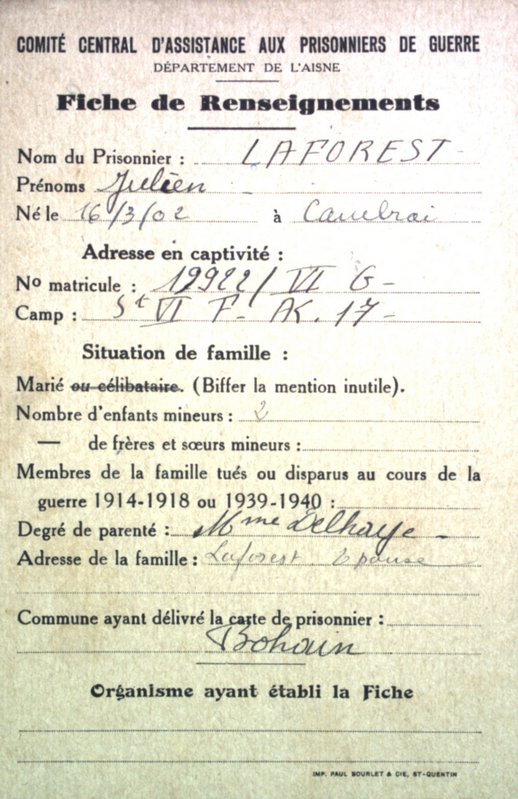 COMITÉ CENTRAL D'ASSISTANCE AUX PRISONNIERS DE GUERRE
DÉPARTEMENT DE L'AISNE
Fiche de Renseignements
Nom du Prisonnier : LAFOREST
Prénoms Julien
Né le 16/3/02 à Cambrai
Adresse en captivité :
No matricule : 19922 / VI G
Camp : St VI F - AK. 17 -
Situation de famille :
Marié ou célibataire. (Biffer la mention inutile).
Nombre d'enfants mineurs : 2
— de frères et sœurs mineurs :
Membres de la famille tués ou disparus au cours de la
guerre 1914-1918 ou 1939-1940 :
Degré de parenté : Mme Delhaye -
Adresse de la famille : Laforest Epouse
Commune ayant délivré la carte de prisonnier :
Bohain
Organisme ayant établi la Fiche
IMP. PAUL BOURLET & CIE, ST-QUENTIN